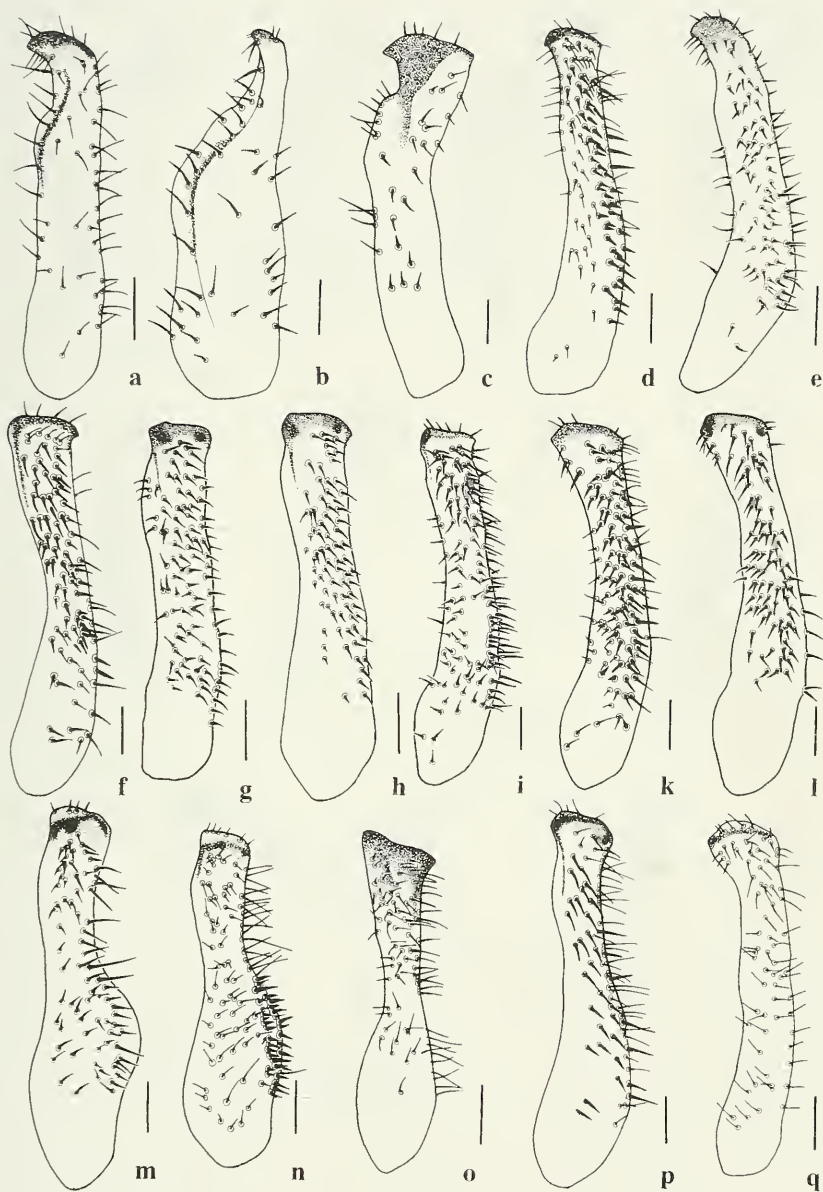 a b c d e
f g h i k l
m n o p q